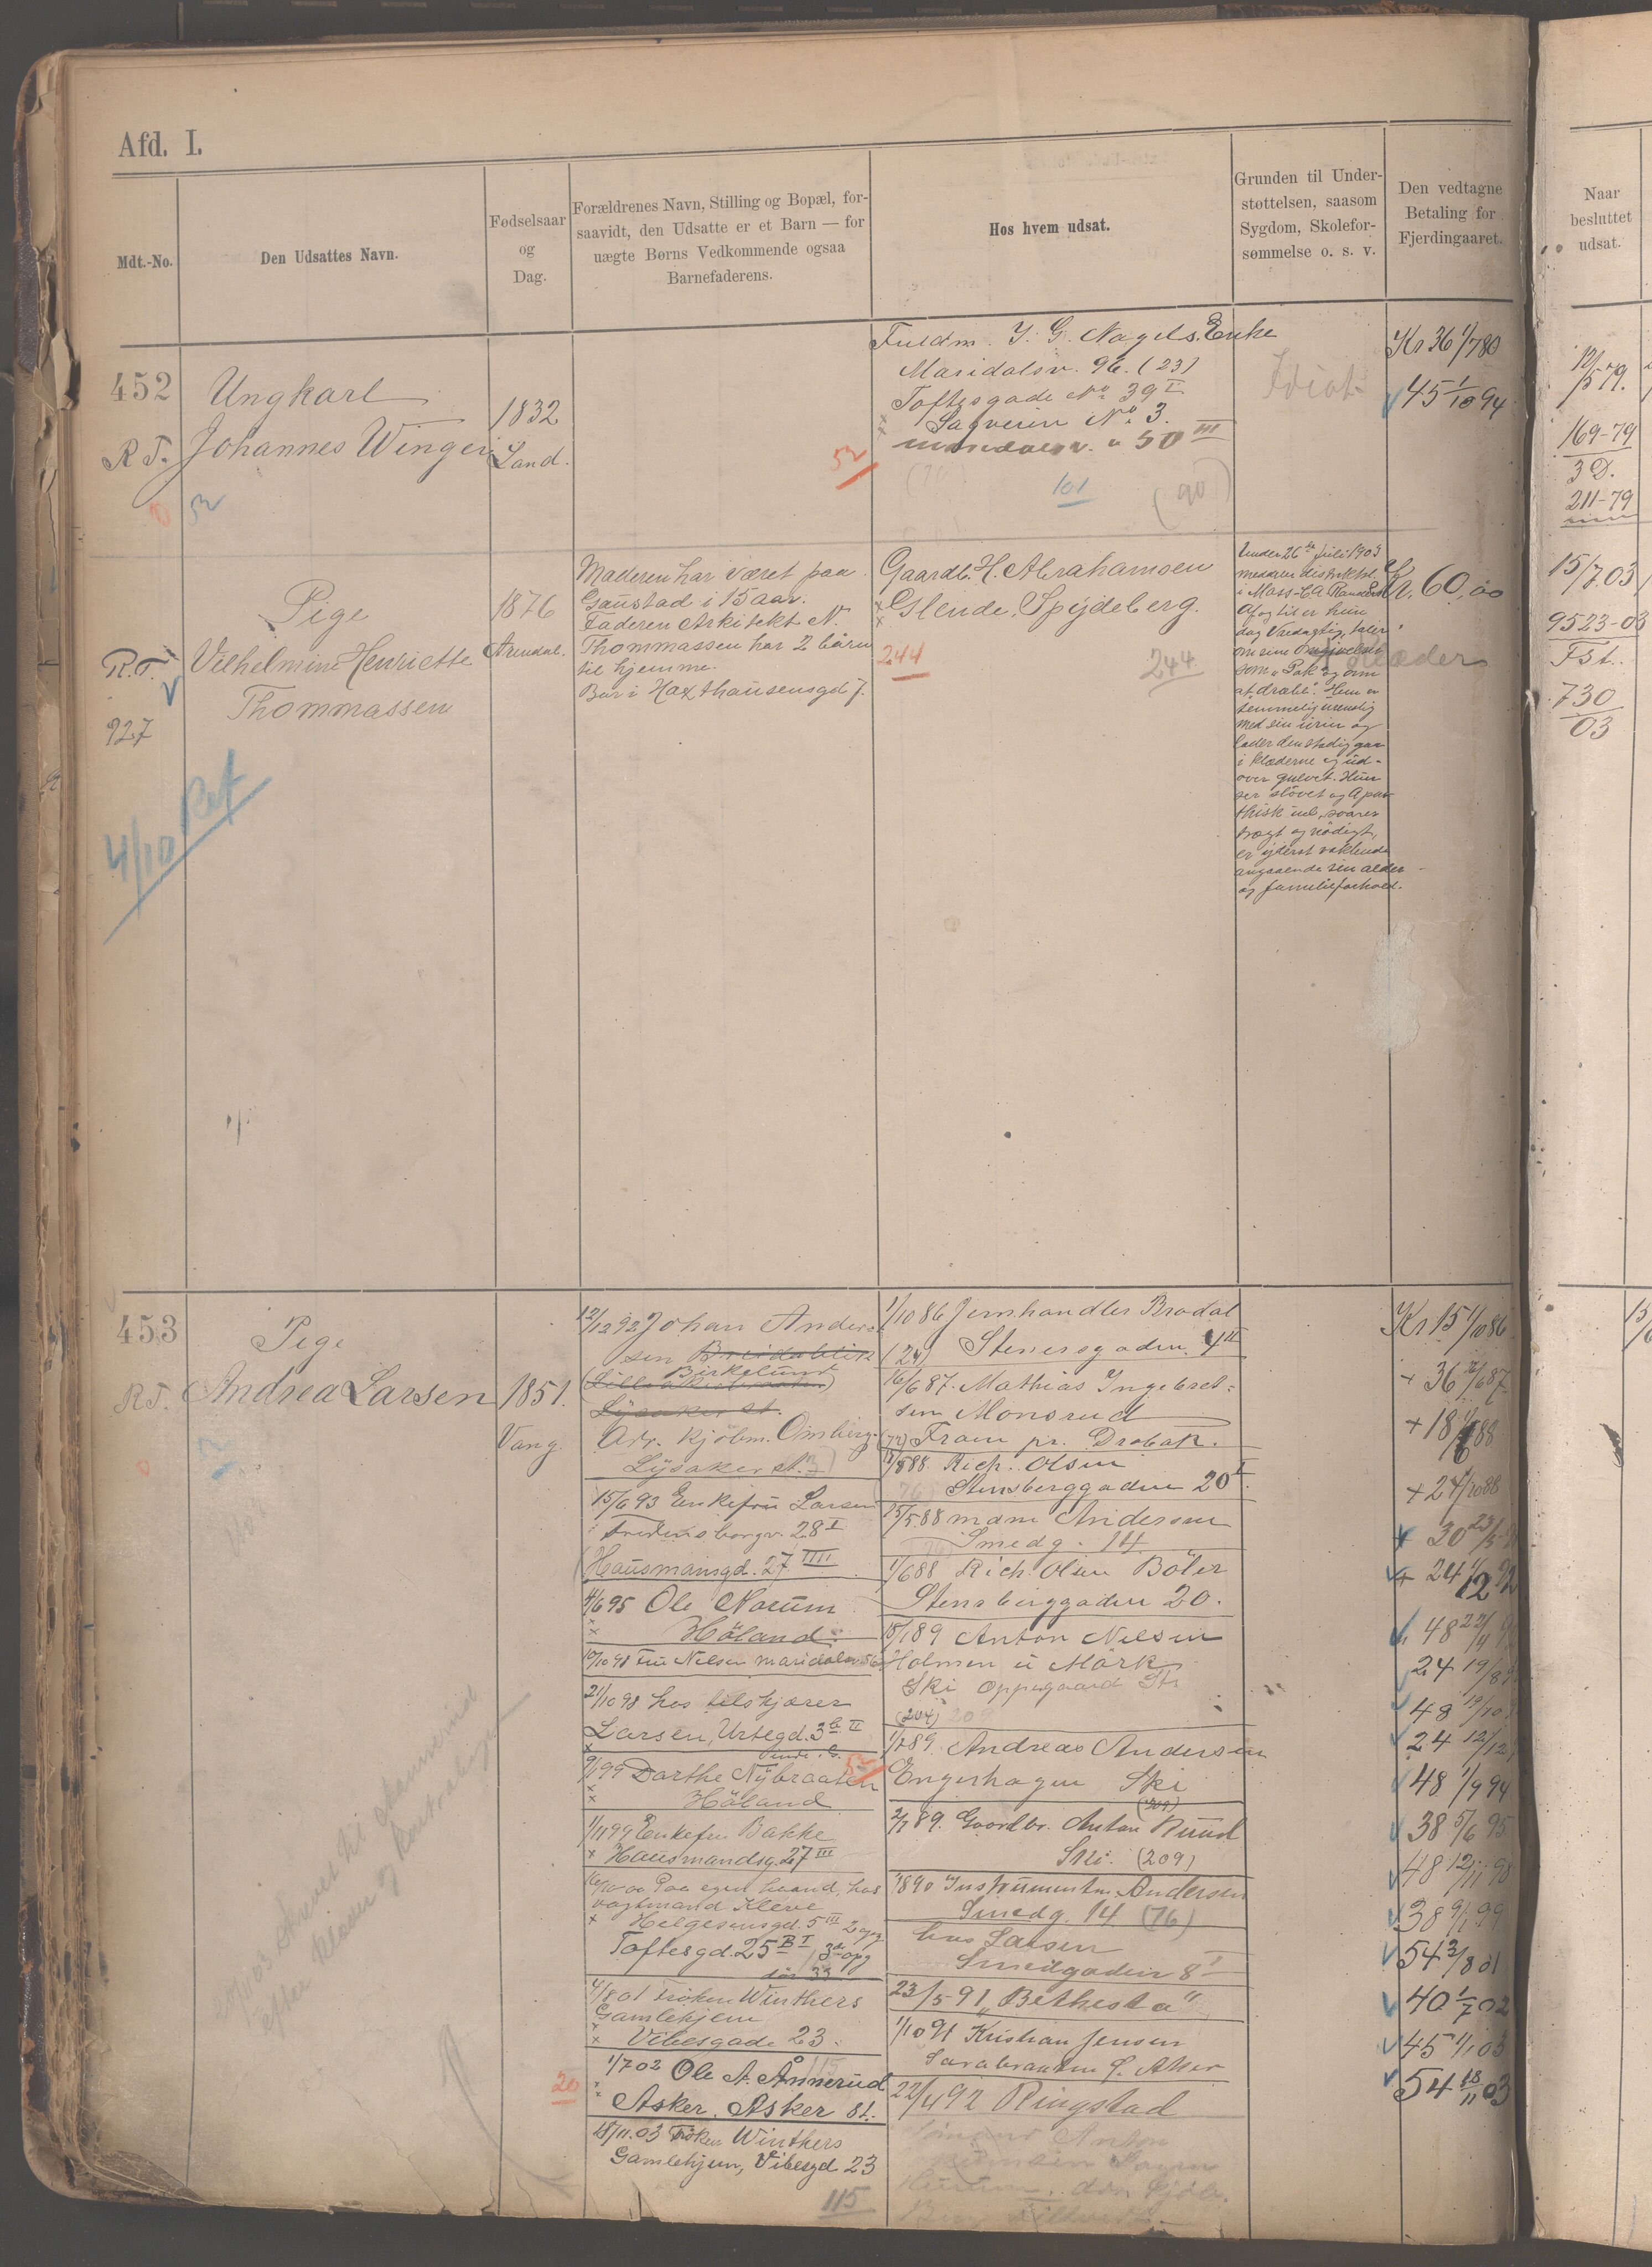 Afd. I.
Mdt.-No.
Den Udsattes Navn.
Fødselsaar
og
Dag.
Forældrenes Navn, Stilling og Bopæl, for-
saavidt, den Udsatte er et Barn — for
uægte Børns Vedkommende ogsaa
Barnefaderens.
Hos hvem udsat.
Grunden til Under-
støttelsen, saasom
Sygdom, Skolefor-
sømmelse o. s. v.
Den vedtagne
Betaling for
Fjerdingaaret.
Naar
besluttet
udsat.
452
R.F.
Ungkarl
Johannes Winger
1832
Land.
Fuldm. J. G. Nagels Enke
Maridalsv. 96. (23)
Toftesgade No 39 II
Sagveien No 3.
50 III
52
101
(90)
Idiot
Kr 36 1/7 80
45 1/10 94
169-79
3 D.
211-79
R.F.
927
4/10 Ret
Pige
Vilhelmine Henriette
Thommassen
1876
Arendal.
Moderen har været paa
Gaustad i 15 aar.
Faderen Arkitekt N.
Thommassen har 2 børn
til hjemme.
Bor i Haxthausensgd 7.
Gaardb. H. Abrahamsen
Glende, Spydeberg.
244
244
Under 26de Juli 1903
meddeler distriktsl.
i Moss
Af og til er hun
dag Vredagtig, taler
om sine Omgivelser
som "Pak" og om
at dræbe. Hun er
temmelig urenslig
med sin urin og
lader den stadig gaa
i klæderne og ud-
over gulvet. Hun
ser sløvet og Apa-
thisk ud, svarer
trægt og nødigt,
er yderst vaklende
angaaende sin alder
og familieforhold.
Kr. 60,00
15/7.03
9523-03
Fst.
730
03
453
R.F.
Pige
Andrea Larsen
1851.
Vang.
12/12 92 Johan Ander-
sen Breidablik
Birkelund
Lysaker st.
Adr. Kjøbm. Omberg.
Lysaker st.
15/6 93 Enkefru Larsen
Fredensborgv. 28 I
Hausmansgd. 27 IIII
4/6 95 Ole Norum
Høland.
10/10 98 Fru Nelsen Maridalsv 56
21/10 98 hos tilskjærer
Larsen, Urtegd. 3 b II
9/1 99 Dorthe Nybraaten
Høland
1/11 99 Enkefru Bakke
Hausmandsg. 27 III
16/10 00 Paa egen haand, hos
vagtmand Kleve
Helgesensgd. 5 III 2 opg.
Toftesgd. 25 B I 3de opg
dør 33
4/8 01 Frøken Winthers
Gamlehjem
Vibesgade 23.
1/7 02 Ole A. Ånnerud
Asker. Asker st.
18/11.03 Frøken Winthers
Gamlehjem, Vibesgd 23
115
20
1/10 86 Jernhandler Brodal
(24) Stenersgaden 4 II
16/6 87. Mathias Ingebret-
sen Monsrud
(72) Fram pr. Drøbak.
Rich. Olsen
Stensberggaden 20 I.
25/5 88 mdm Andersen
Smedg. 14
1/6 88 Rich. Olsen Böler
Stensberggaden 20.
15/1 89 Anton Nelsen
Holmen u Mörk
Ski Oppegaard St
(204)
1/7 89. Andreas Andersen
Engerhagen Ski
(209)
2/1 89. Gaardbr. Anton Ruud
Ski. (209)
1/8 90 Instrumentm. Andersen
Smedg. 14 (76)
hos Larsen
Smedgaden 8 I
23/5-91 "Bethesta"
1/10 91 Kristian Jensen
22/4 92 Ringstad
Kr 15 1/10 86
+ 36 16/6 87.
+ 18
+ 24 1/10 88
30 23/5
24 1/12 92
48 22/11
24 19/8
48 19/10
24 12/12
48 1/9 94
38 5/6 95.
48 12/11 98
38 9/1 99
54 3/8 01
40 1/7 02
45 1/1 03
54 18/11 03